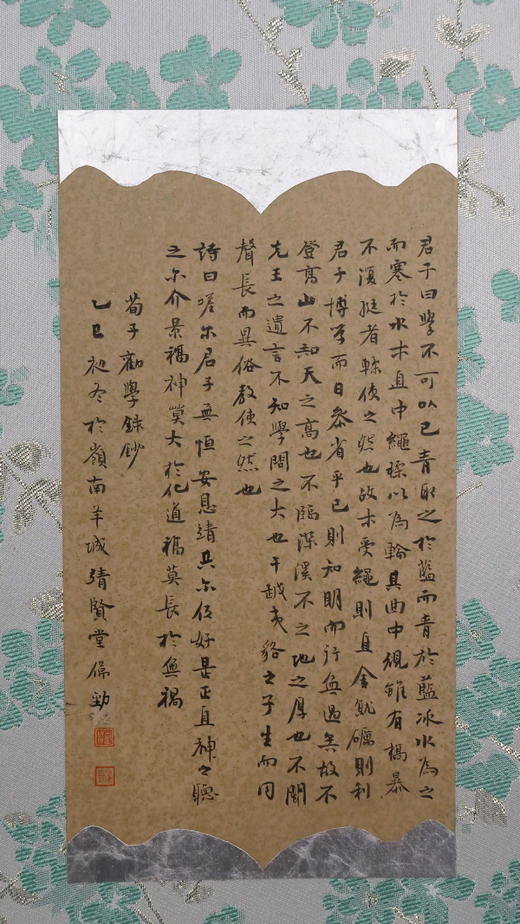 君子曰學不可以已青取之於藍而青於藍冰水為之
而寒於水木直中繩輮以為輪其曲中規雖有槁暴
不復挺者輮使之然也故木受繩則直金就礪則利
君子博學而日參省乎己則知明而行無過矣故不
登高山不知天之高也不臨深溪不之地之厚也不聞
先王之遺言不知學問之大也干越夷貉之子生而同
聲長而異俗教使之然也
詩曰嗟尔君子無恒安息靖共尔位好是正直神之聽
之尔介景福神莫大於化道福莫長於無禍
荀子勸學錄鈔
乙巳初冬於嶺南羊城賢堂保勁